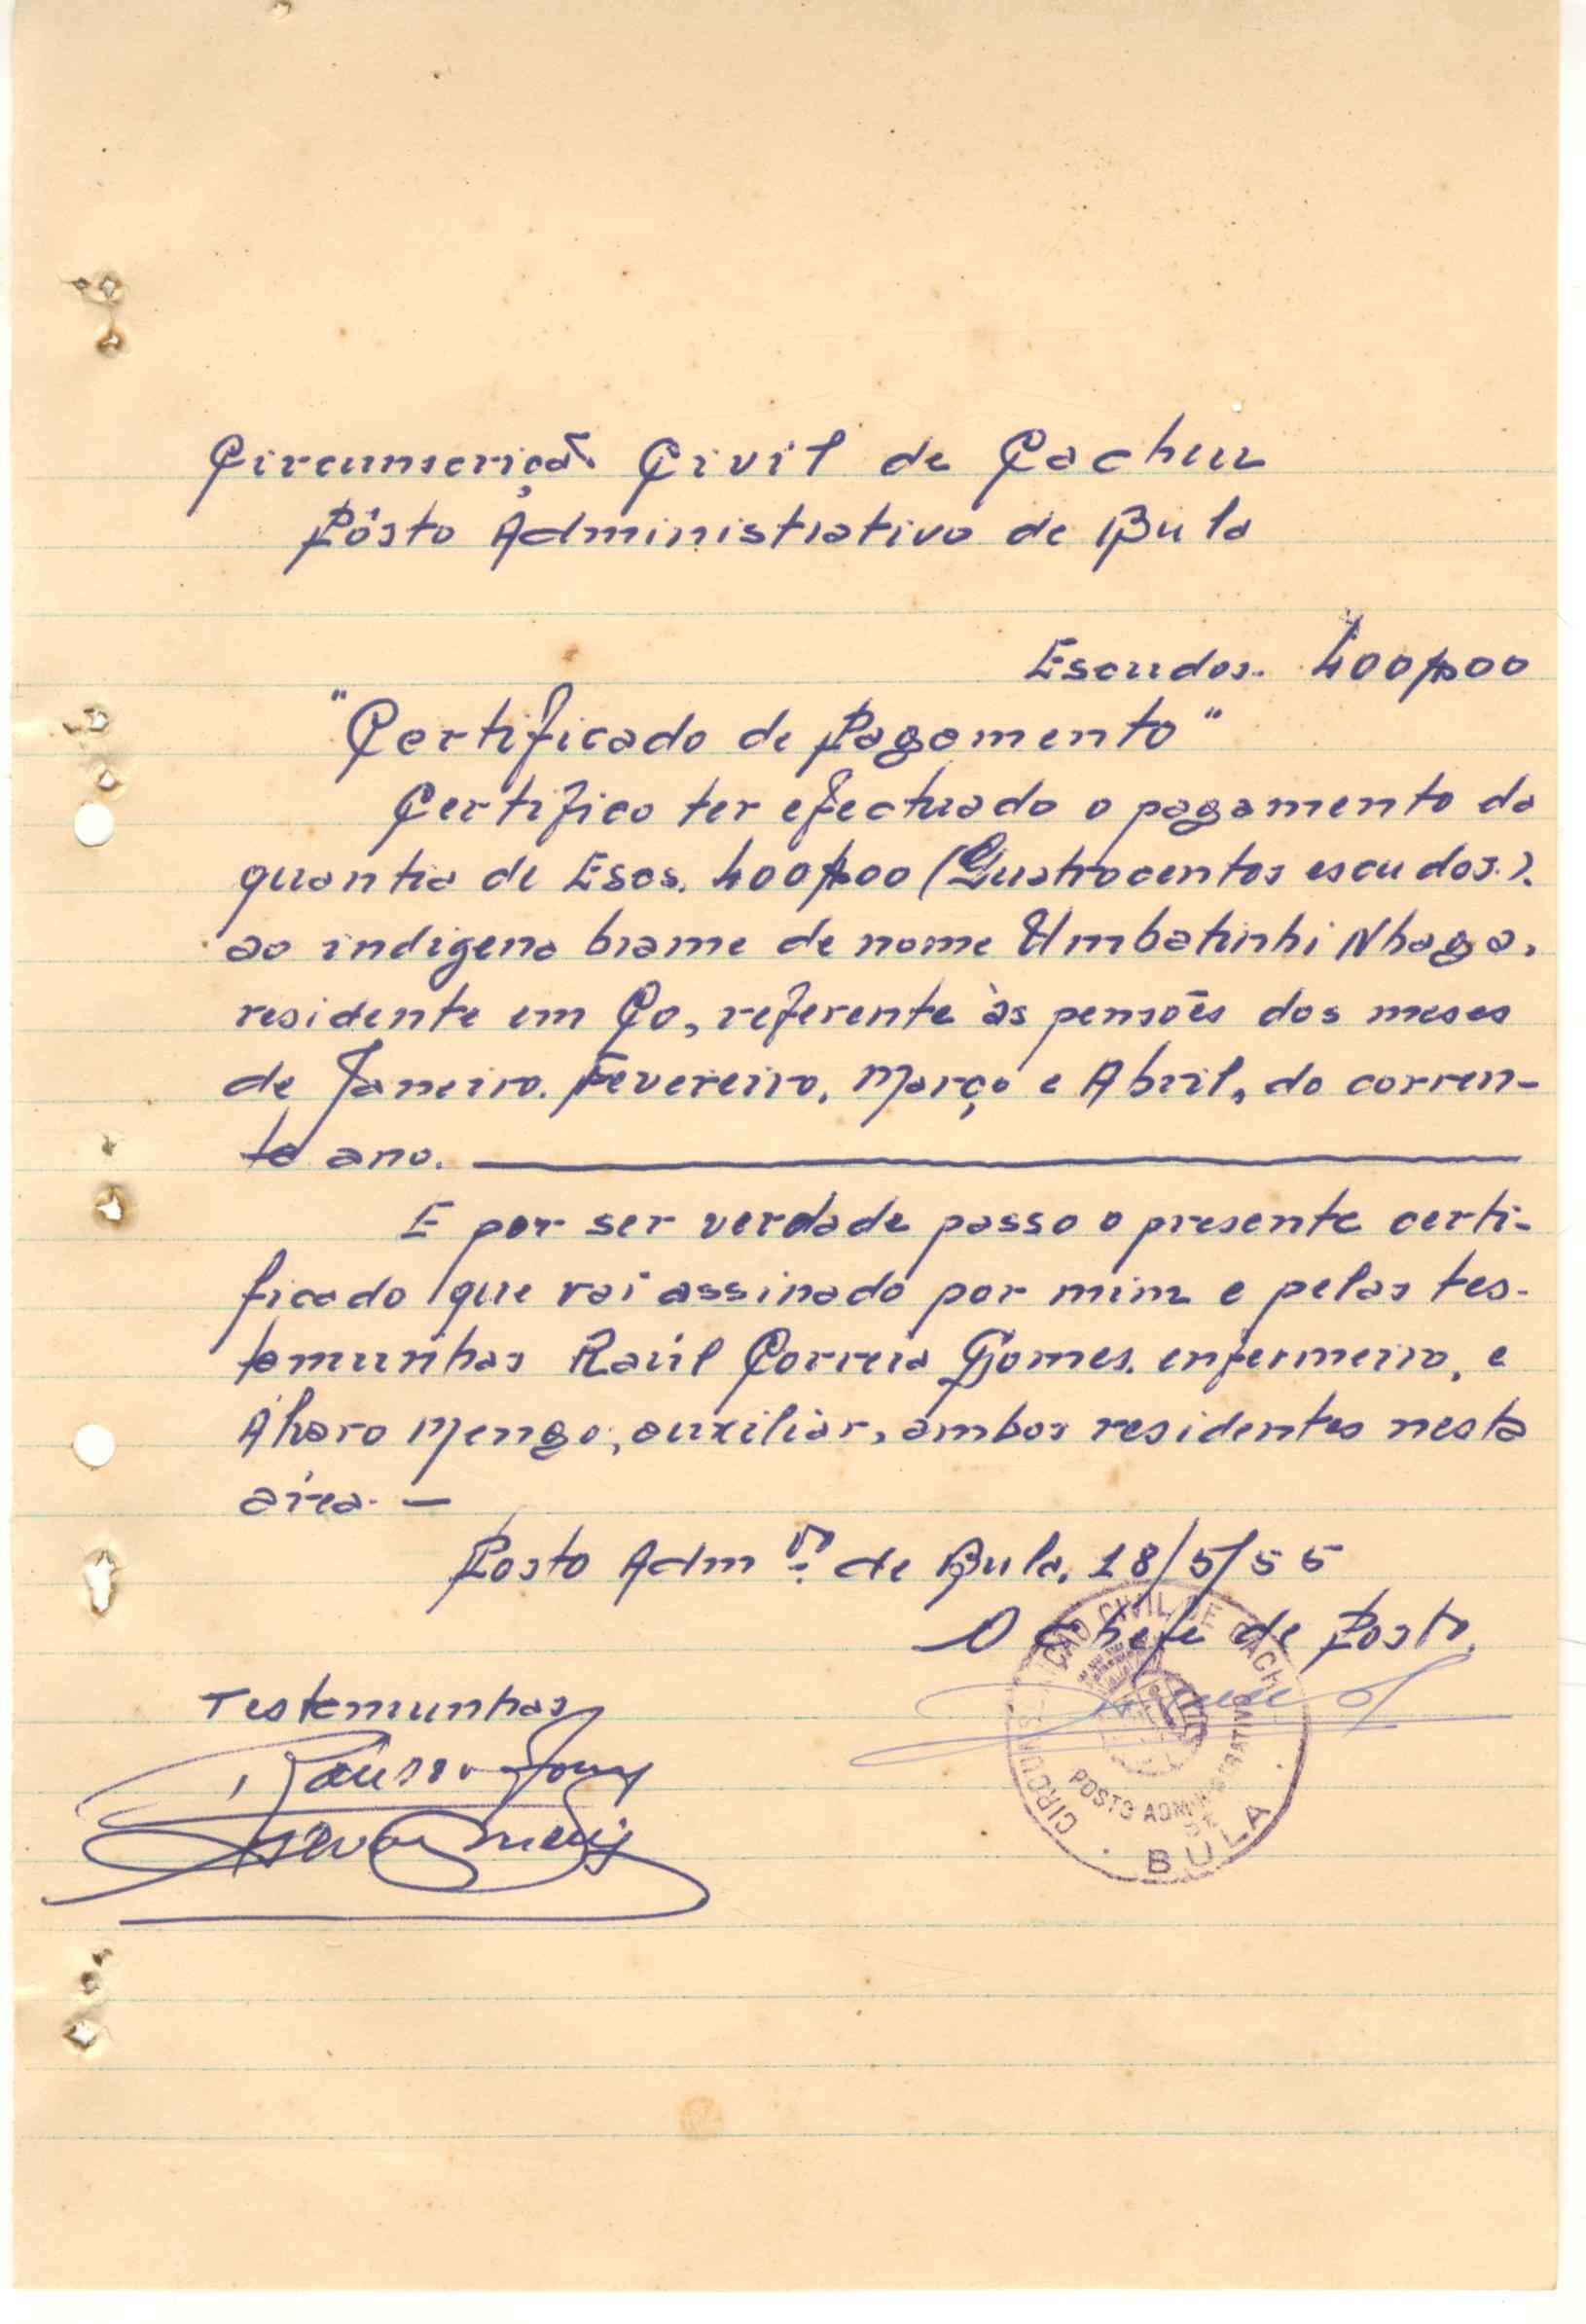 Circunscrição Civil de Cacheu
Pôsto Administrativo de Bula
Escudos. 400$00
"Certificado de Pagamento"
Certifico ter efectuado o pagamento da
quantia de Escs. 400$00 (Quatrocentos escudos.).
ao indigena brame de nome Umbatinhi Nhaga,
residente em Có, referente às pensões dos meses
de Janeiro. Fevereiro, Março e Abril, do corren-
te ano.
E por ser verdade passo o presente certi-
ficado que vai assinado por mim e pelas tes-
temunhas Raúl Correia Gomes, enfermeiro, e
Álvaro Mengo, auxiliar, ambos residentes nesta
área. —
Posto Admvo. de Bula, 18/5/55
O Chefe de Posto,
CIRCUNSCRIÇÃO CIVIL DE CACHEU
POSTO ADMINISTRATIVO
BULA
Testemunhas